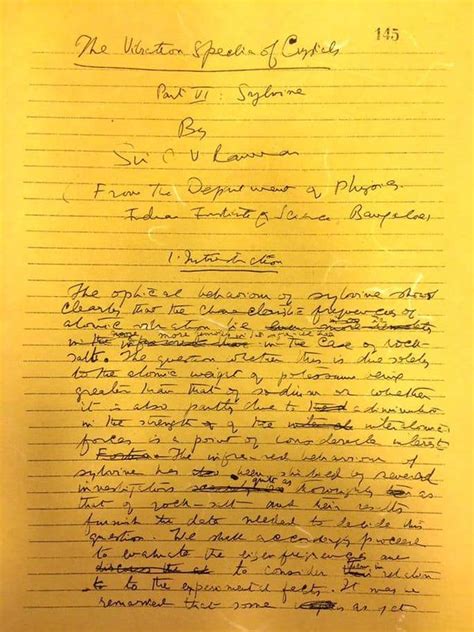 145
The Vibration Spectra of Crystals
Part VI : Sylvine
By
Sir C V Raman
(From the Department of Physics,
Indian Institute of Science, Bangalore)
1. Introduction
The optical behaviour of sylvine shows
clearly that the characteristic frequencies of
atomic vibration lie even more
in the in the case of rock-
salt. The question whether this is due solely
to the atomic weight of potassium being
greater than that of sodium or whether
it is also partly due to a diminution
in the strength of the interatomic
forces is a point of considerable interest
The infra-red behaviour of
sylvine has been studied by several
investigators quite as thoroughly as
that of rock-salt and their results
furnish the data needed to decide this
question. We shall accordingly proceed
to evaluate the eigenfrequencies and
to consider their relation
to the experimental facts. It was
remarked that some as yet